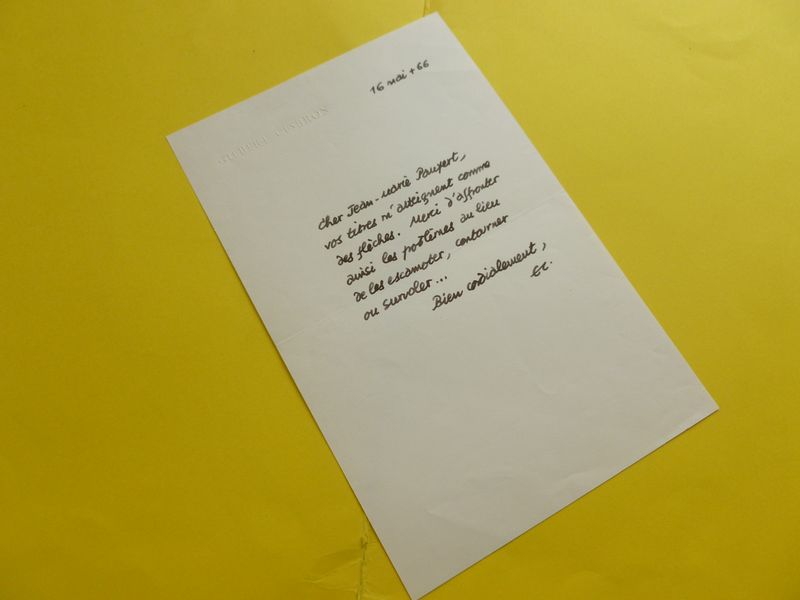 GILBERT CESBRON
16 mai + 66
Cher Jean-Marie Paupert,
vos titres m'atteignent comme
des flèches. Merci d'affronter
ainsi les problèmes au lieu
de les escamoter, contourner
ou survoler...
Bien cordialement,
GC.